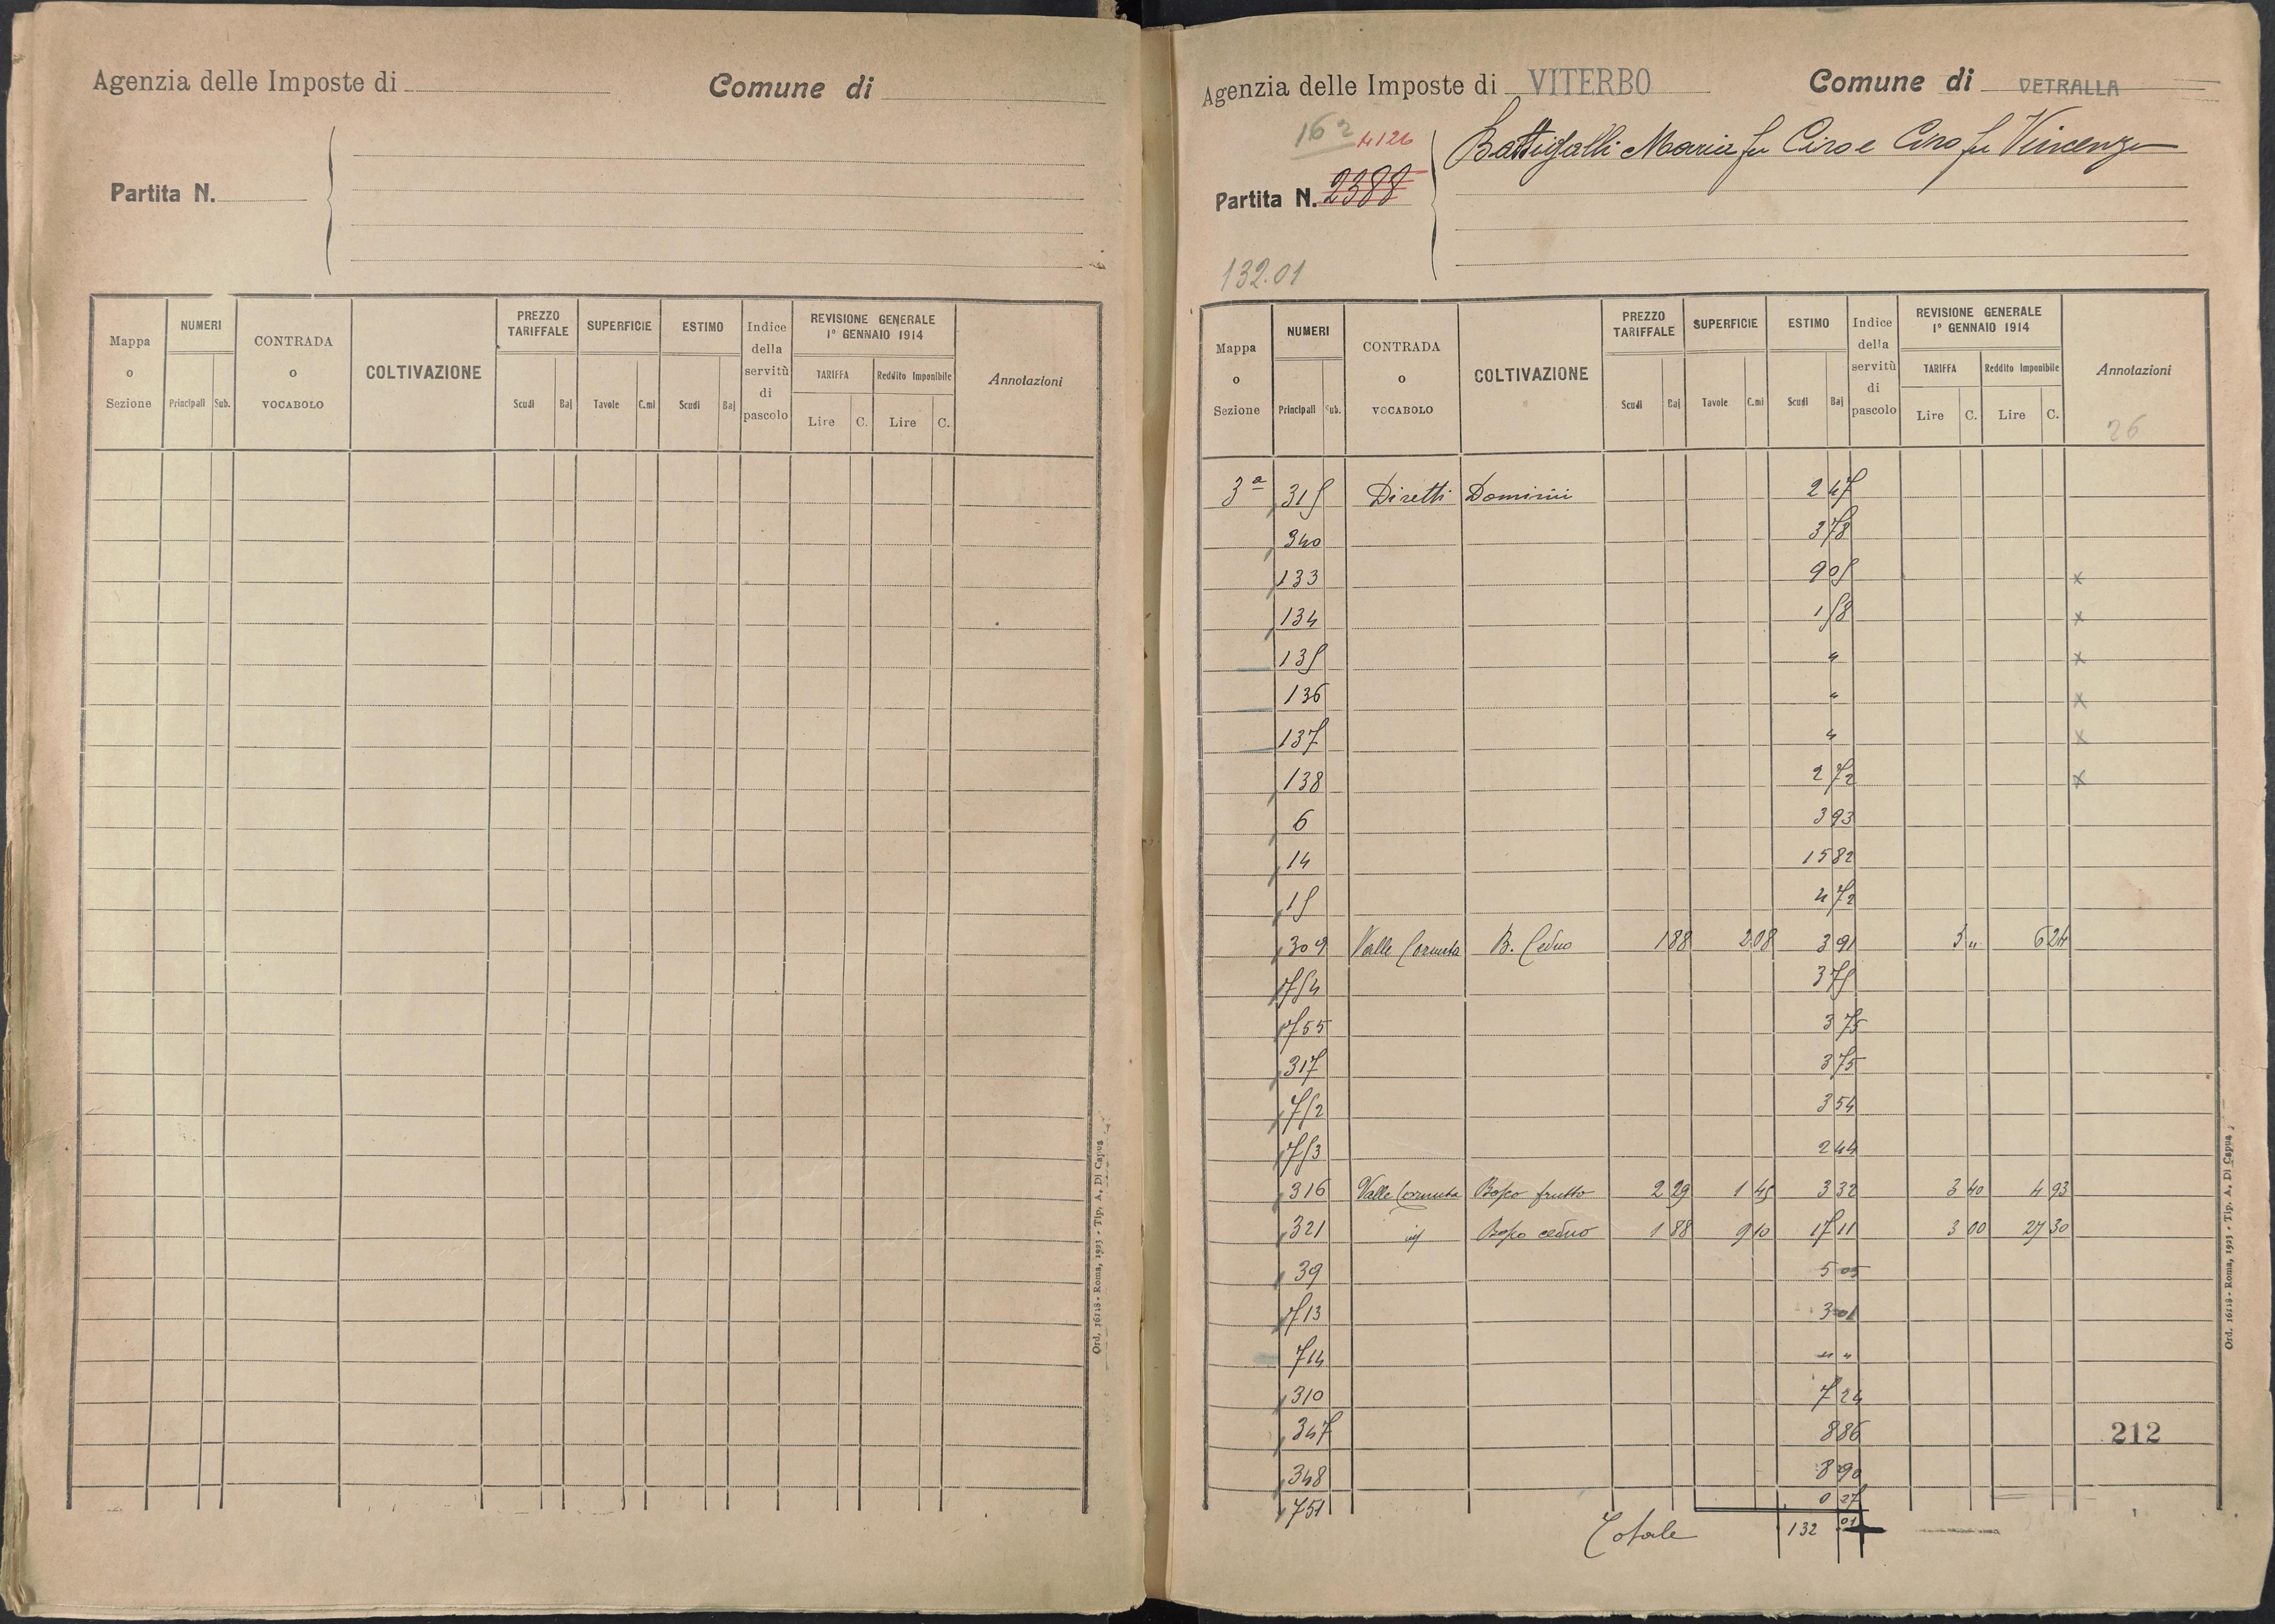 Agenzia delle Imposte di
Comune di
Partita N.
Mappa o Sezione
NUMERI
Principali Sub.
CONTRADA o VOCABOLO
COLTIVAZIONE
PREZZO TARIFFALE
Scudi Baj
SUPERFICIE
Tavole C.mi
ESTIMO
Scudi Baj
Indice della servitù di pascolo
REVISIONE GENERALE 1° GENNAIO 1914
TARIFFA
Lire C.
Reddito Imponibile
Lire C.
Annotazioni
Ord. 16118 - Roma, 1923 - Tip. A. Di Capua
Agenzia delle Imposte di VITERBO
Comune di VETRALLA
162 4126
Battiglalli Maria fu Ciro e Ciro fu Vincenzo
Partita N. 2388
132.01
Mappa o Sezione
NUMERI
Principali Sub.
CONTRADA o VOCABOLO
COLTIVAZIONE
PREZZO TARIFFALE
Scudi Baj
SUPERFICIE
Tavole C.mi
ESTIMO
Scudi Baj
Indice della servitù di pascolo
REVISIONE GENERALE 1° GENNAIO 1914
TARIFFA
Lire C.
Reddito Imponibile
Lire C.
Annotazioni
26
3ª 315 Diretti Dominii 2 47
340 3 78
133 9 05 x
134 1 58 x
135 " x
136 " x
137 " x
138 2 72 x
6 3 93
14 15 82
15 4 72
309 Valle Cornuta B. Ceduo 1 88 2 08 3 91 3 " 6 24
754 3 75
755 3 75
317 3 75
752 3 54
753 2 44
316 Valle Cornuta Bosco frutto 2 29 1 45 3 32 3 40 4 93
321 id Bosco ceduo 1 88 9 10 17 11 3 00 27 30
39 5 05
713 3 01
714 " "
310 7 24
347 8 86
212
348 8 90
751 0 27
Totale 132 01
Ord. 16118 - Roma, 1923 - Tip. A. Di Capua